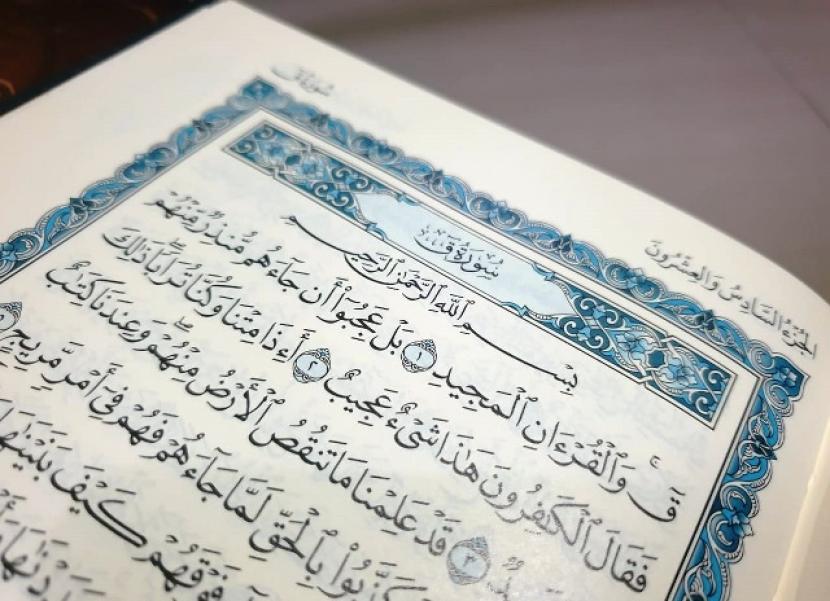 الجُزْءُ السَّادِسُ وَالعِشْرُونَ
سُورَةُ قٓ
سُورَةُ قٓ
بِسْمِ ٱللَّهِ ٱلرَّحْمَٰنِ ٱلرَّحِيمِ
قٓۚ وَٱلْقُرْءَانِ ٱلْمَجِيدِ ١ بَلْ عَجِبُوٓا۟ أَن جَآءَهُم مُّنذِرٌ مِّنْهُمْ
فَقَالَ ٱلْكَٰفِرُونَ هَٰذَا شَىْءٌ عَجِيبٌ ٢ أَءِذَا مِتْنَا وَكُنَّا تُرَابًاۖ ذَٰلِكَ
٣ قَدْ عَلِمْنَا مَا تَنقُصُ ٱلْأَرْضُ مِنْهُمْۖ وَعِندَنَا كِتَٰبٌ
كَذَّبُوا۟ بِٱلْحَقِّ لَمَّا جَآءَهُمْ فَهُمْ فِىٓ أَمْرٍ مَّرِيجٍ
فَوْقَهُمْ كَيْفَ بَنَيْنَٰهَا